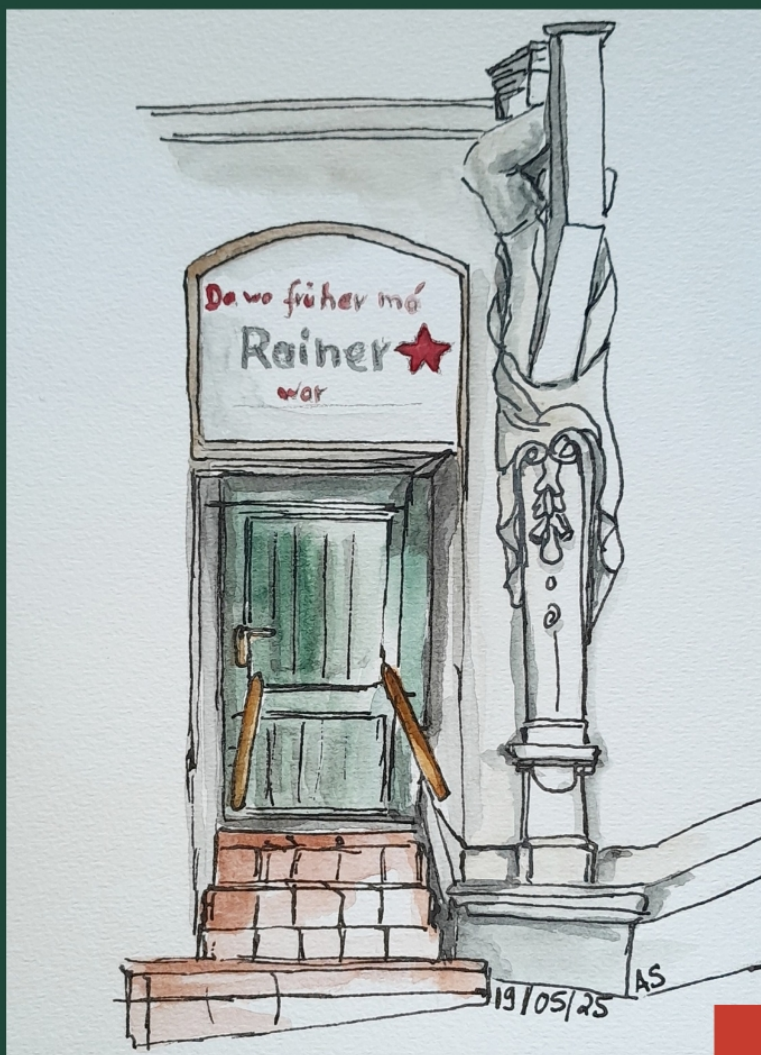 Da wo früher mó
Rainer
war
19/05/25
AS